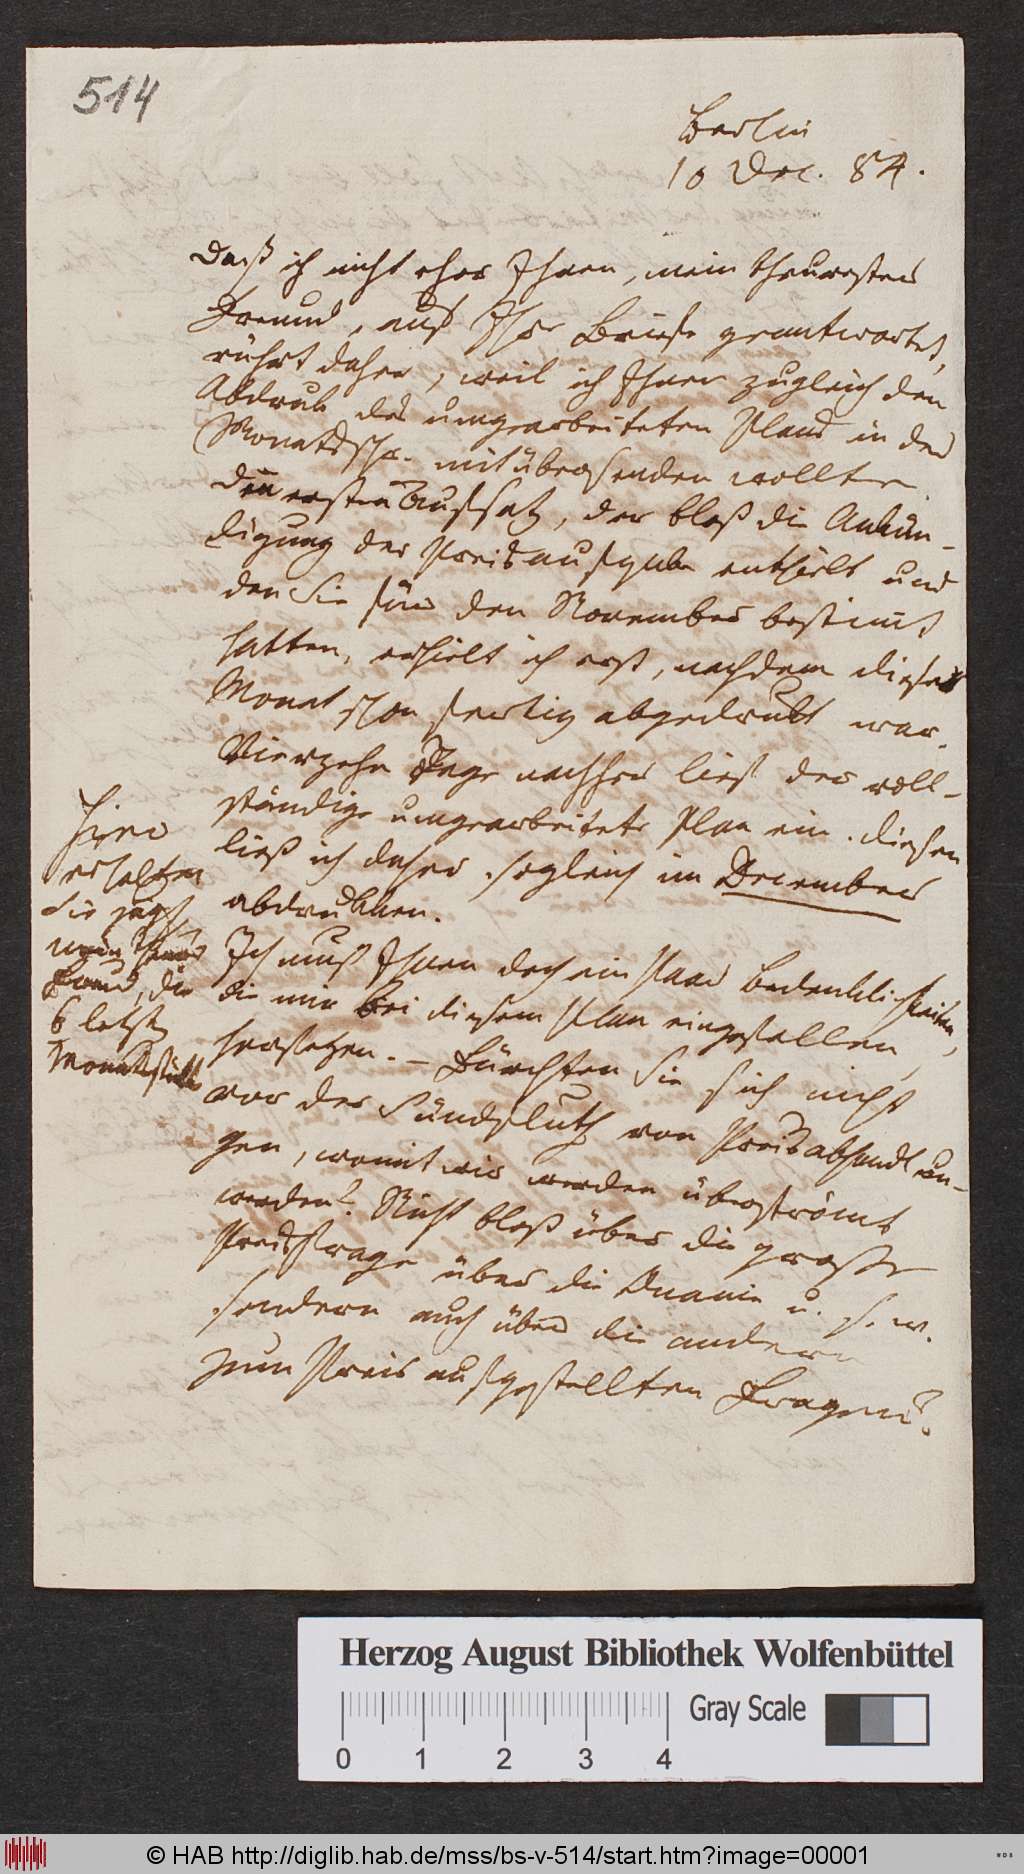 514
Berlin
10 Dec. 84.
Daß ich nicht eher Ihnen, mein theurester
Freund, auf Ihre Briefe geantwortet,
rührt daher, weil ich Ihnen zugleich den
Abdruk des umgearbeiteten Plans in der
Monatsschr. mitübersenden wollte.
Den ersten Aufsatz, der bloß die Ankün-
digung der Preisaufgabe enthielt und
den Sie für den November bestimmt
hatten, erhielt ich erst, nachdem dieser
Monat schon fertig abgedrukt war.
Vierzehn Tage nachher lief der voll-
ständige umgearbeitete Plan ein. diesen
ließ ich daher sogleich im December
abdrukken.
Ich muß Ihnen doch ein Paar Bedenklichkeiten,
die mir bei diesem Plan eingefallen,
hersetzen. – Fürchten Sie sich nicht
vor der Sündfluth von Preisabhandlun-
gen, womit wir werden überströmt
werden? Nicht bloß über die große
Preisfrage über die Onanie u. s. w.
sondern auch über die andern
zum Preis aufgestellten Fragen?
Hier
erhalten
Sie jetzt,
mein theurer
Freund, die
6 letzten
Monatsstükke
Herzog August Bibliothek Wolfenbüttel
Gray Scale
0 1 2 3 4
© HAB http://diglib.hab.de/mss/bs-v-514/start.htm?image=00001
WDB